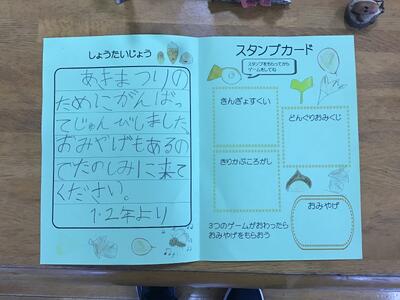 しょうたいじょう
あきまつりの
ためにがんばっ
てじゅんびしました。
おみやげもあるの
でたのしみに来て
ください。
1・2年より
スタンプカード
スタンプをもらってから
ゲームをしてね
きんぎょすくい
どんぐりおみくじ
きりかぶころがし
おみやげ
3つのゲームがおわったら
おみやげをもらおう